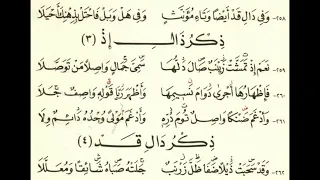 ٢٥٨- وَفِي دَالِ قَدْ أَيْضًا وَتَاءِ مُؤَنَّثٍ وَفِي هَلْ وَبَلْ فَاحْتَلْ بِذِهْنِكَ أَحْيَلَا
ذِكْرُ ذَالِ إِذْ (٣)
٢٥٩- نَعَمْ إِذْ تَمَشَّتْ زَيْنَبٌ صَالَ دَلُّهَا سَمِيَّ جَمَالٍ وَاصِلًا مَنْ تَوَصَّلَا
٢٦٠- فَإِظْهَارُهَا أَجْرَى دَوَامَ نَسِيمِهَا وَأَظْهَرَ رَيَّا قَوْلِهِ وَاصِفٌ جَلَا
٢٦١- وَأَدْغَمَ ضَنْكًا وَاصِلٌ تُومَ دُرِّهِ وَأَدْغَمَ مَوْلًى وُجْدُهُ دَائِمٌ وَلَا
ذِكْرُ دَالِ قَدْ (٤)
٢٦٢- وَقَدْ سَحَبَتْ ذَيْلًا ضَفَا ظَلَّ زَرْنَبٌ جَلَتْهُ صَبَاهُ شَائِقًا وَمُعَلَّلَا